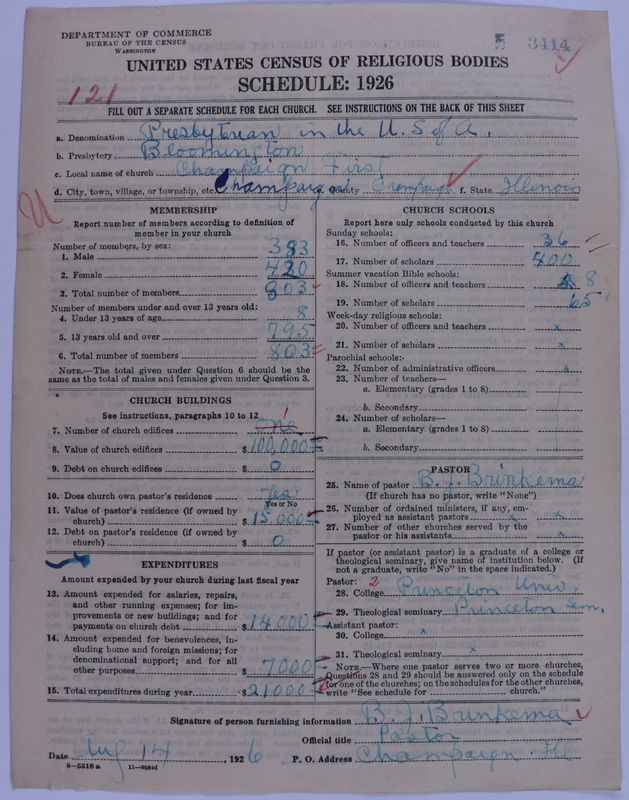 DEPARTMENT OF COMMERCE
BUREAU OF THE CENSUS
WASHINGTON
3414
UNITED STATES CENSUS OF RELIGIOUS BODIES
SCHEDULE: 1926
121
FILL OUT A SEPARATE SCHEDULE FOR EACH CHURCH. SEE INSTRUCTIONS ON THE BACK OF THIS SHEET
a. Denomination Presbyterian in the U. S of A.
b. Presbytery Bloomington
c. Local name of church Champaign First
d. City, town, village, or township, etc. Champaign County Champaign f. State Illinois
MEMBERSHIP
Report number of members according to definition of member in your church
Number of members, by sex:
1. Male 383
2. Female 420
3. Total number of members 803
Number of members under and over 13 years old:
4. Under 13 years of age 8
5. 13 years old and over 795
6. Total number of members 803
NOTE.—The total given under Question 6 should be
same as the total of males and females given under Question 3.
CHURCH BUILDINGS
See instructions, paragraphs 10 to 12
7. Number of church edifices 1
8. Value of church edifices $100,000
9. Debt on church edifices $0
10. Does church own pastor's residence Yes
Yes or No
11. Value of pastor's residence (if owned by
church) $15,000
12. Debt on pastor's residence (if owned by
church) $0
EXPENDITURES
Amount expended by your church during last fiscal year
13. Amount expended for salaries, repairs,
and other running expenses; for im-
provements or new buildings; and for
payments on church debt $14,000
14. Amount expended for benevolences, in-
cluding home and foreign missions; for
denominational support; and for all
other purposes $7000
15. Total expenditures during year $21000
CHURCH SCHOOLS
Report here only schools conducted by this church
Sunday schools:
16. Number of officers and teachers 36
17. Number of scholars 400
Summer vacation Bible schools:
18. Number of officers and teachers 8
19. Number of scholars 65
Week-day religious schools:
20. Number of officers and teachers x
21. Number of scholars x
Parochial schools:
22. Number of administrative officers x
23. Number of teachers—
a. Elementary (grades 1 to 8)
b. Secondary
24. Number of scholars—
a. Elementary (grades 1 to 8)
b. Secondary
PASTOR
25. Name of pastor B. J. Brinkema
(If church has no pastor, write "None")
26. Number of ordained ministers, if any, em-
ployed as assistant pastors x
27. Number of other churches served by the
pastor or his assistants x
If pastor (or assistant pastor) is a graduate of a college or
theological seminary, give name of institution below. (If
not a graduate, write "No" in the space indicated.)
Pastor: 2
28. College Princeton Univ.
29. Theological seminary Princeton Sem.
Assistant pastor:
30. College x
31. Theological seminary x
NOTE.—Where one pastor serves two or more churches,
Questions 28 and 29 should be answered only on the schedule
for one of the churches; on the schedules for the other churches,
write "See schedule for church."
Signature of person furnishing information B. J. Brinkema
Official title Pastor
Date Aug 14, 1926 P. O. Address Champaign Ill
8—5518 a